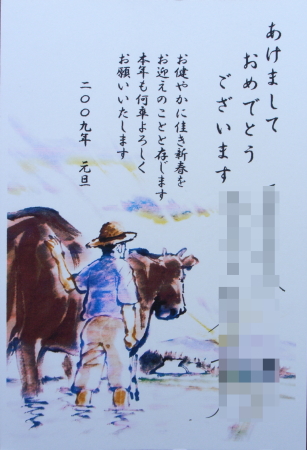 あけまして
おめでとう
ございます
お健やかに佳き新春を
お迎えのことと存じます
本年も何卒よろしく
お願いいたします
二〇〇九年 元旦